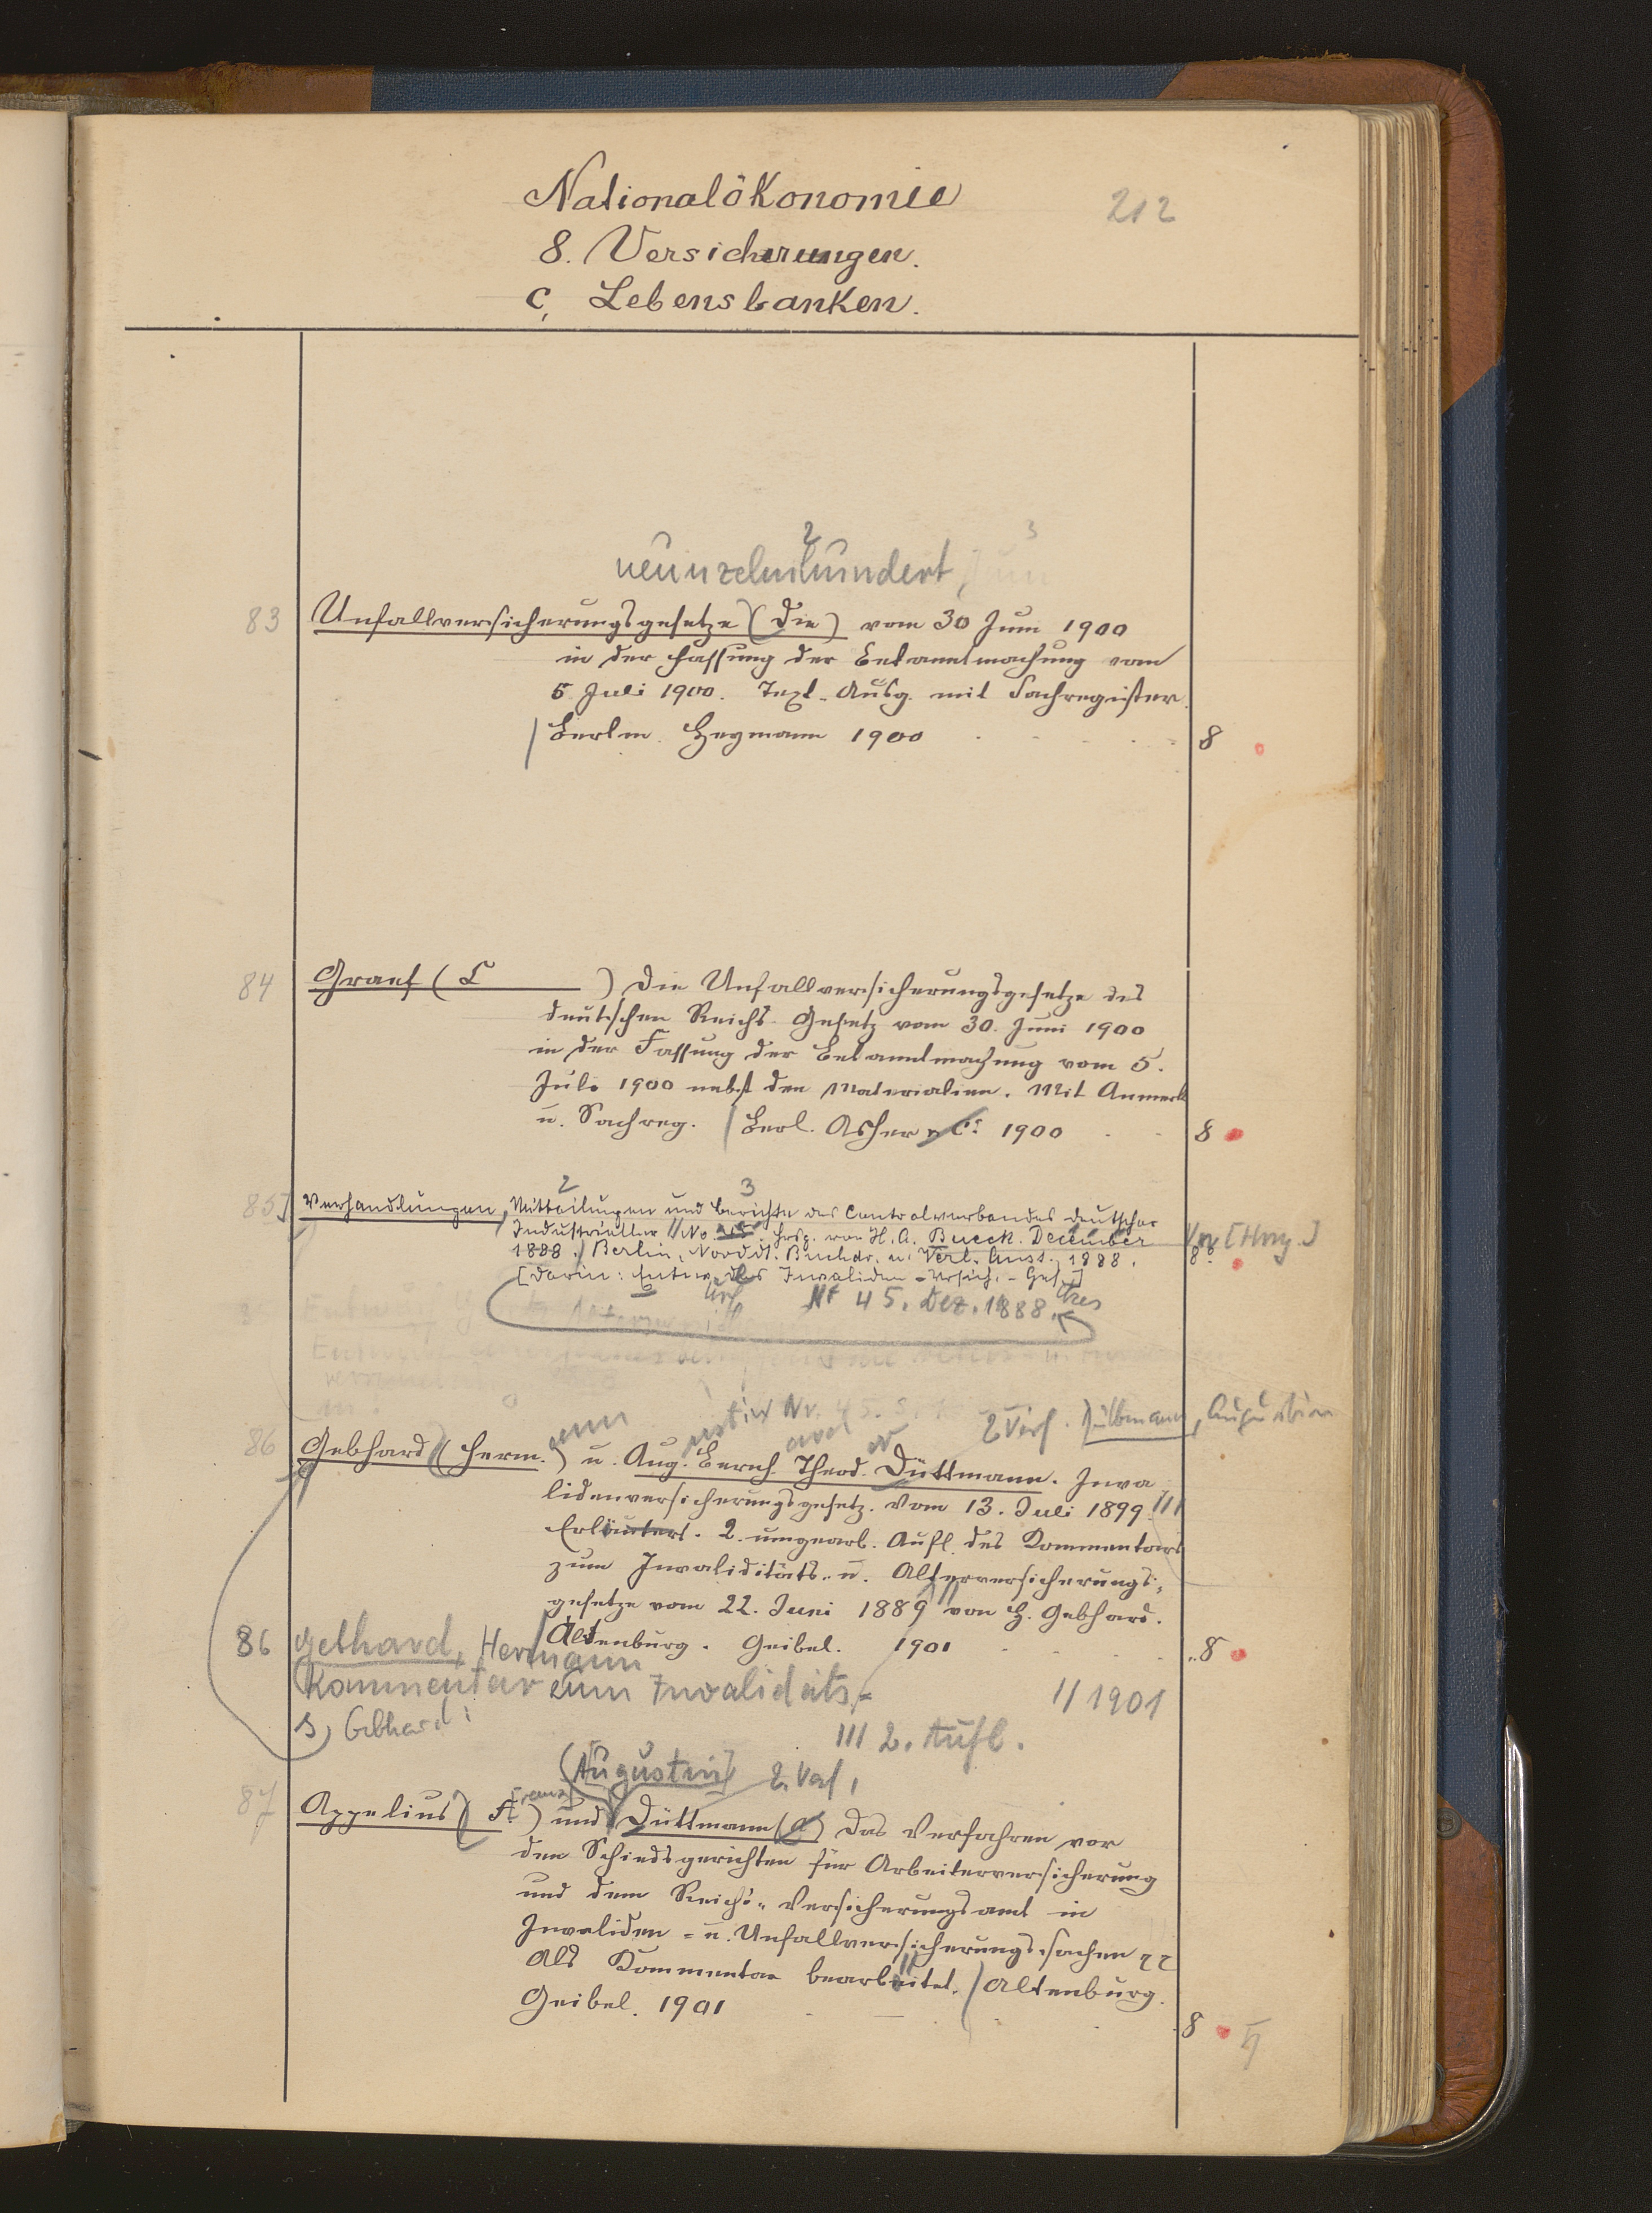 Nationalökonomie
212
8. Versicherungen.
c, Lebensbanken.
2 3
neunzehnhundert,
83 Unfallversicherungsgesetze (Die) vom 30 Juni 1900
in der Fassung der Bekanntmachung vom
5 Juli 1900. Text-Ausg. mit Sachregister.
Berlin. Heymann 1900 8
84 Graef (E ) Die Unfallversicherungsgesetze des
deutschen Reichs. Gesetz vom 30. Juni 1900
in der Fassung der Bekanntmachung vom 5.
Juli 1900 nebst den Materialien. Mit Anmerk
u. Sachreg. Berl. Asher & Co 1900 8
2 3
85 Verhandlungen, Mitteilungen und Berichte des Centralverbandes deutscher
Industrieller No. 45. Hrsg. von H. A. Bueck. December
1888. Berlin, Nordd. Buchdr. u. Verl. Anst. 1888. 8°
[Darin: Entw. des Invaliden-Versich.-Ges.]
Nr 45. Dez. 1888.
2 Verf. Düttmann, Augustin
86 Gebhard (Herm.) u. Aug. Bernh. Theod. Düttmann. Inva
lidenversicherungsgesetz. Vom 13. Juli 1899. III
Erläutert. 2. umgearb. Aufl. des Kommentars
zum Invaliditäts- u. Altersversicherungs-
gesetze vom 22. Juni 1889 von H. Gebhard.
Altenburg. Geibel. 1901 8
86 Gebhard, Hermann
Kommentar zum Invalidäts- II 1901
s) Gebhard: III 2. Aufl.
(Augustin) 2. Verf.
87 Appelius (F.) und Düttmann (A) Das Verfahren vor
den Schiedsgerichten für Arbeiterversicherung
und dem Reichs-Versicherungsamt in
Invaliden- u. Unfallversicherungssachen
Als Kommentar bearbeitet. Altenburg.
Geibel. 1901 8